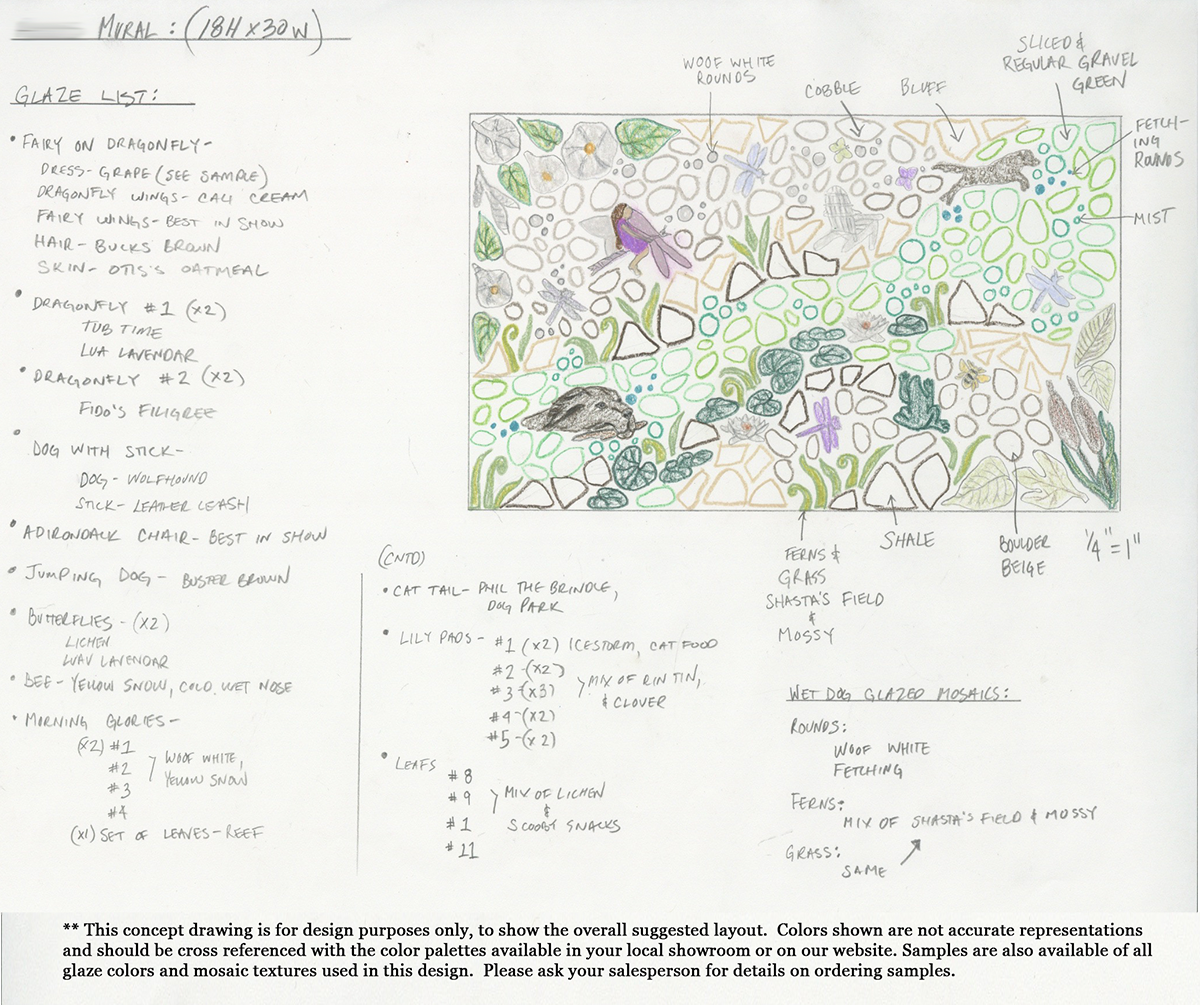 MURAL : (18H X 30W)
GLAZE LIST:
• FAIRY ON DRAGONFLY-
DRESS- GRAPE (SEE SAMPLE)
DRAGONFLY WINGS- CALI CREAM
FAIRY WINGS- BEST IN SHOW
HAIR- BUCKS BROWN
SKIN- OTIS'S OATMEAL
• DRAGONFLY #1 (X2)
TUB TIME
LUA LAVENDAR
• DRAGONFLY #2 (X2)
FIDO'S FILIGREE
• DOG WITH STICK-
DOG- WOLFHOUND
STICK- LEATHER LEASH
• ADIRONDACK CHAIR- BEST IN SHOW
• JUMPING DOG - BUSTER BROWN
• BUTTERFLIES - (X2)
LICHEN
LUAV LAVENDAR
• BEE- YELLOW SNOW, COLD WET NOSE
• MORNING GLORIES-
(X2) #1
#2
#3
#4
WOOF WHITE,
YELLOW SNOW
(X1) SET OF LEAVES- REEF
WOOF WHITE
ROUNDS
COBBLE
BLUFF
SLICED &
REGULAR GRAVEL
GREEN
FETCH-
ING
ROUNDS
MIST
FERNS &
GRASS
SHASTA'S FIELD
&
MOSSY
SHALE
BOULDER
BEIGE
1/4" = 1"
(CNTD)
• CAT TAIL- PHIL THE BRINDLE,
DOG PARK
• LILY PADS- #1 (X2) ICESTORM, CAT FOOD
#2 -(X2)
#3 -(X3)
#4 -(X2)
#5 -(X2)
MIX OF RIN TIN,
& CLOVER
• LEAFS
#8
#9
#1
#11
MIX OF LICHEN
&
SCOOBY SNACKS
WET DOG GLAZED MOSAICS:
ROUNDS:
WOOF WHITE
FETCHING
FERNS:
MIX OF SHASTA'S FIELD & MOSSY
GRASS:
SAME
** This concept drawing is for design purposes only, to show the overall suggested layout.  Colors shown are not accurate representations
and should be cross referenced with the color palettes available in your local showroom or on our website. Samples are also available of all
glaze colors and mosaic textures used in this design.  Please ask your salesperson for details on ordering samples.